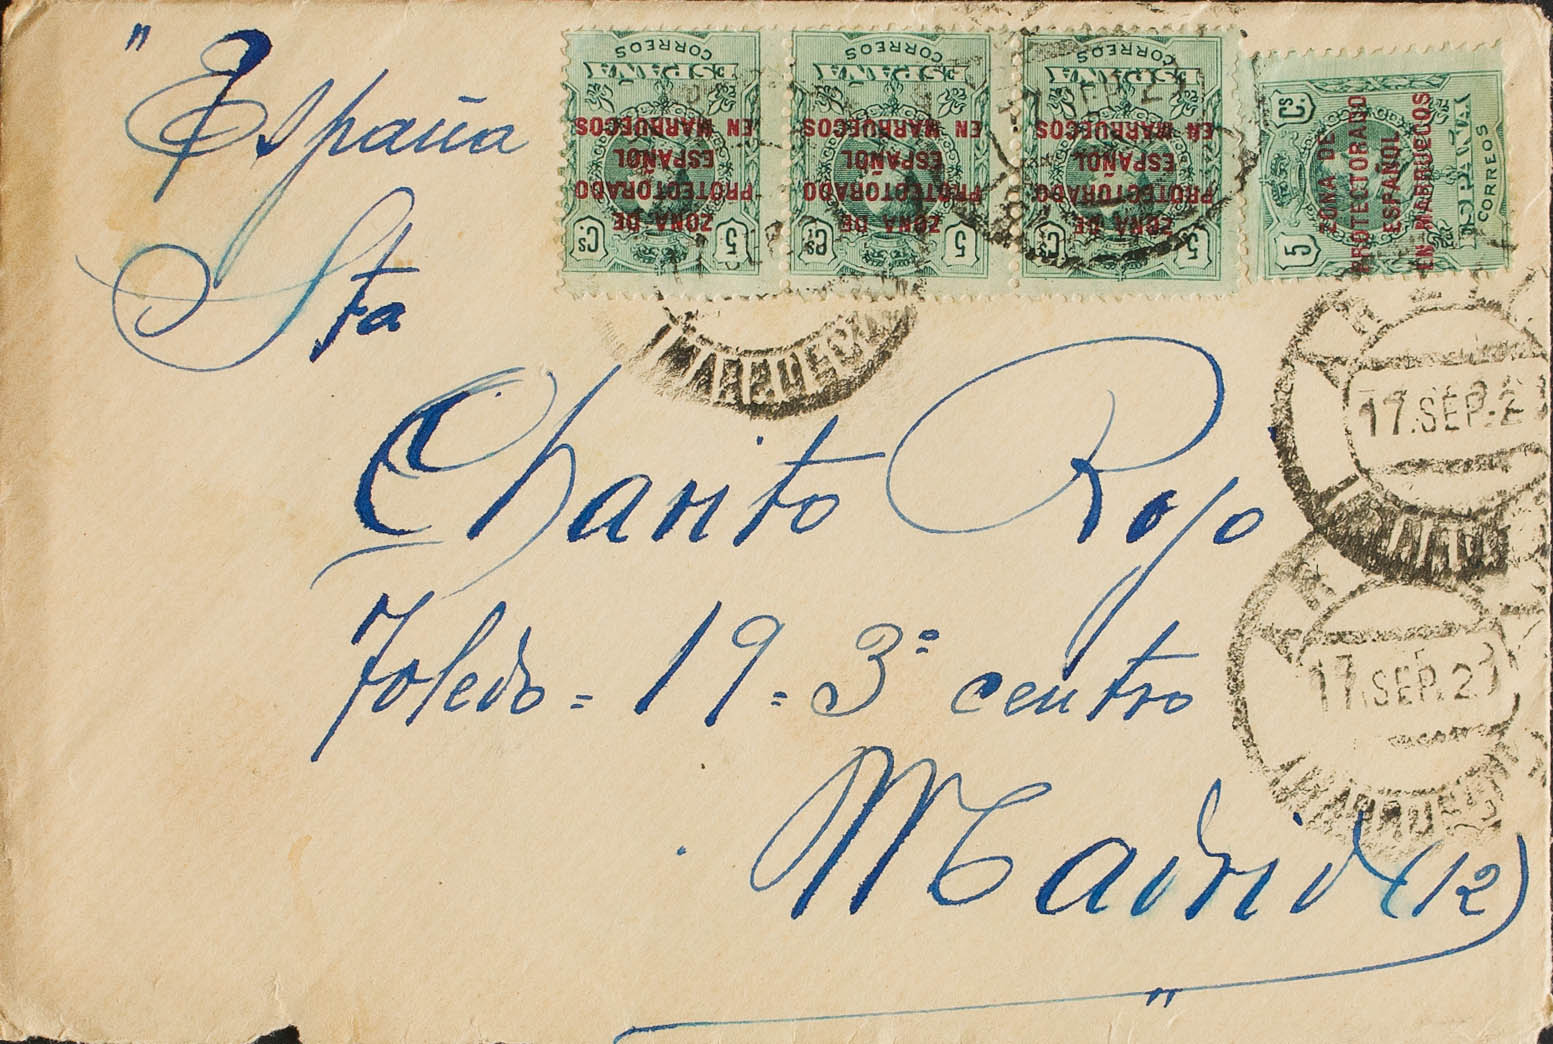 " España
Sta
Charito Rojo
Toledo = 19 = 3º centro
Madrid (12)
"
CORREOS
ESPAÑA
ZONA DE
PROTECTORADO
ESPAÑOL
EN MARRUECOS
5 Cs
CORREOS
ESPAÑA
ZONA DE
PROTECTORADO
ESPAÑOL
EN MARRUECOS
5 Cs
CORREOS
ESPAÑA
ZONA DE
PROTECTORADO
ESPAÑOL
EN MARRUECOS
5 Cs
5 Cs
ZONA DE
PROTECTORADO
ESPAÑOL
EN MARRUECOS
ESPAÑA
CORREOS
17.SEP.2
17.SEP.2